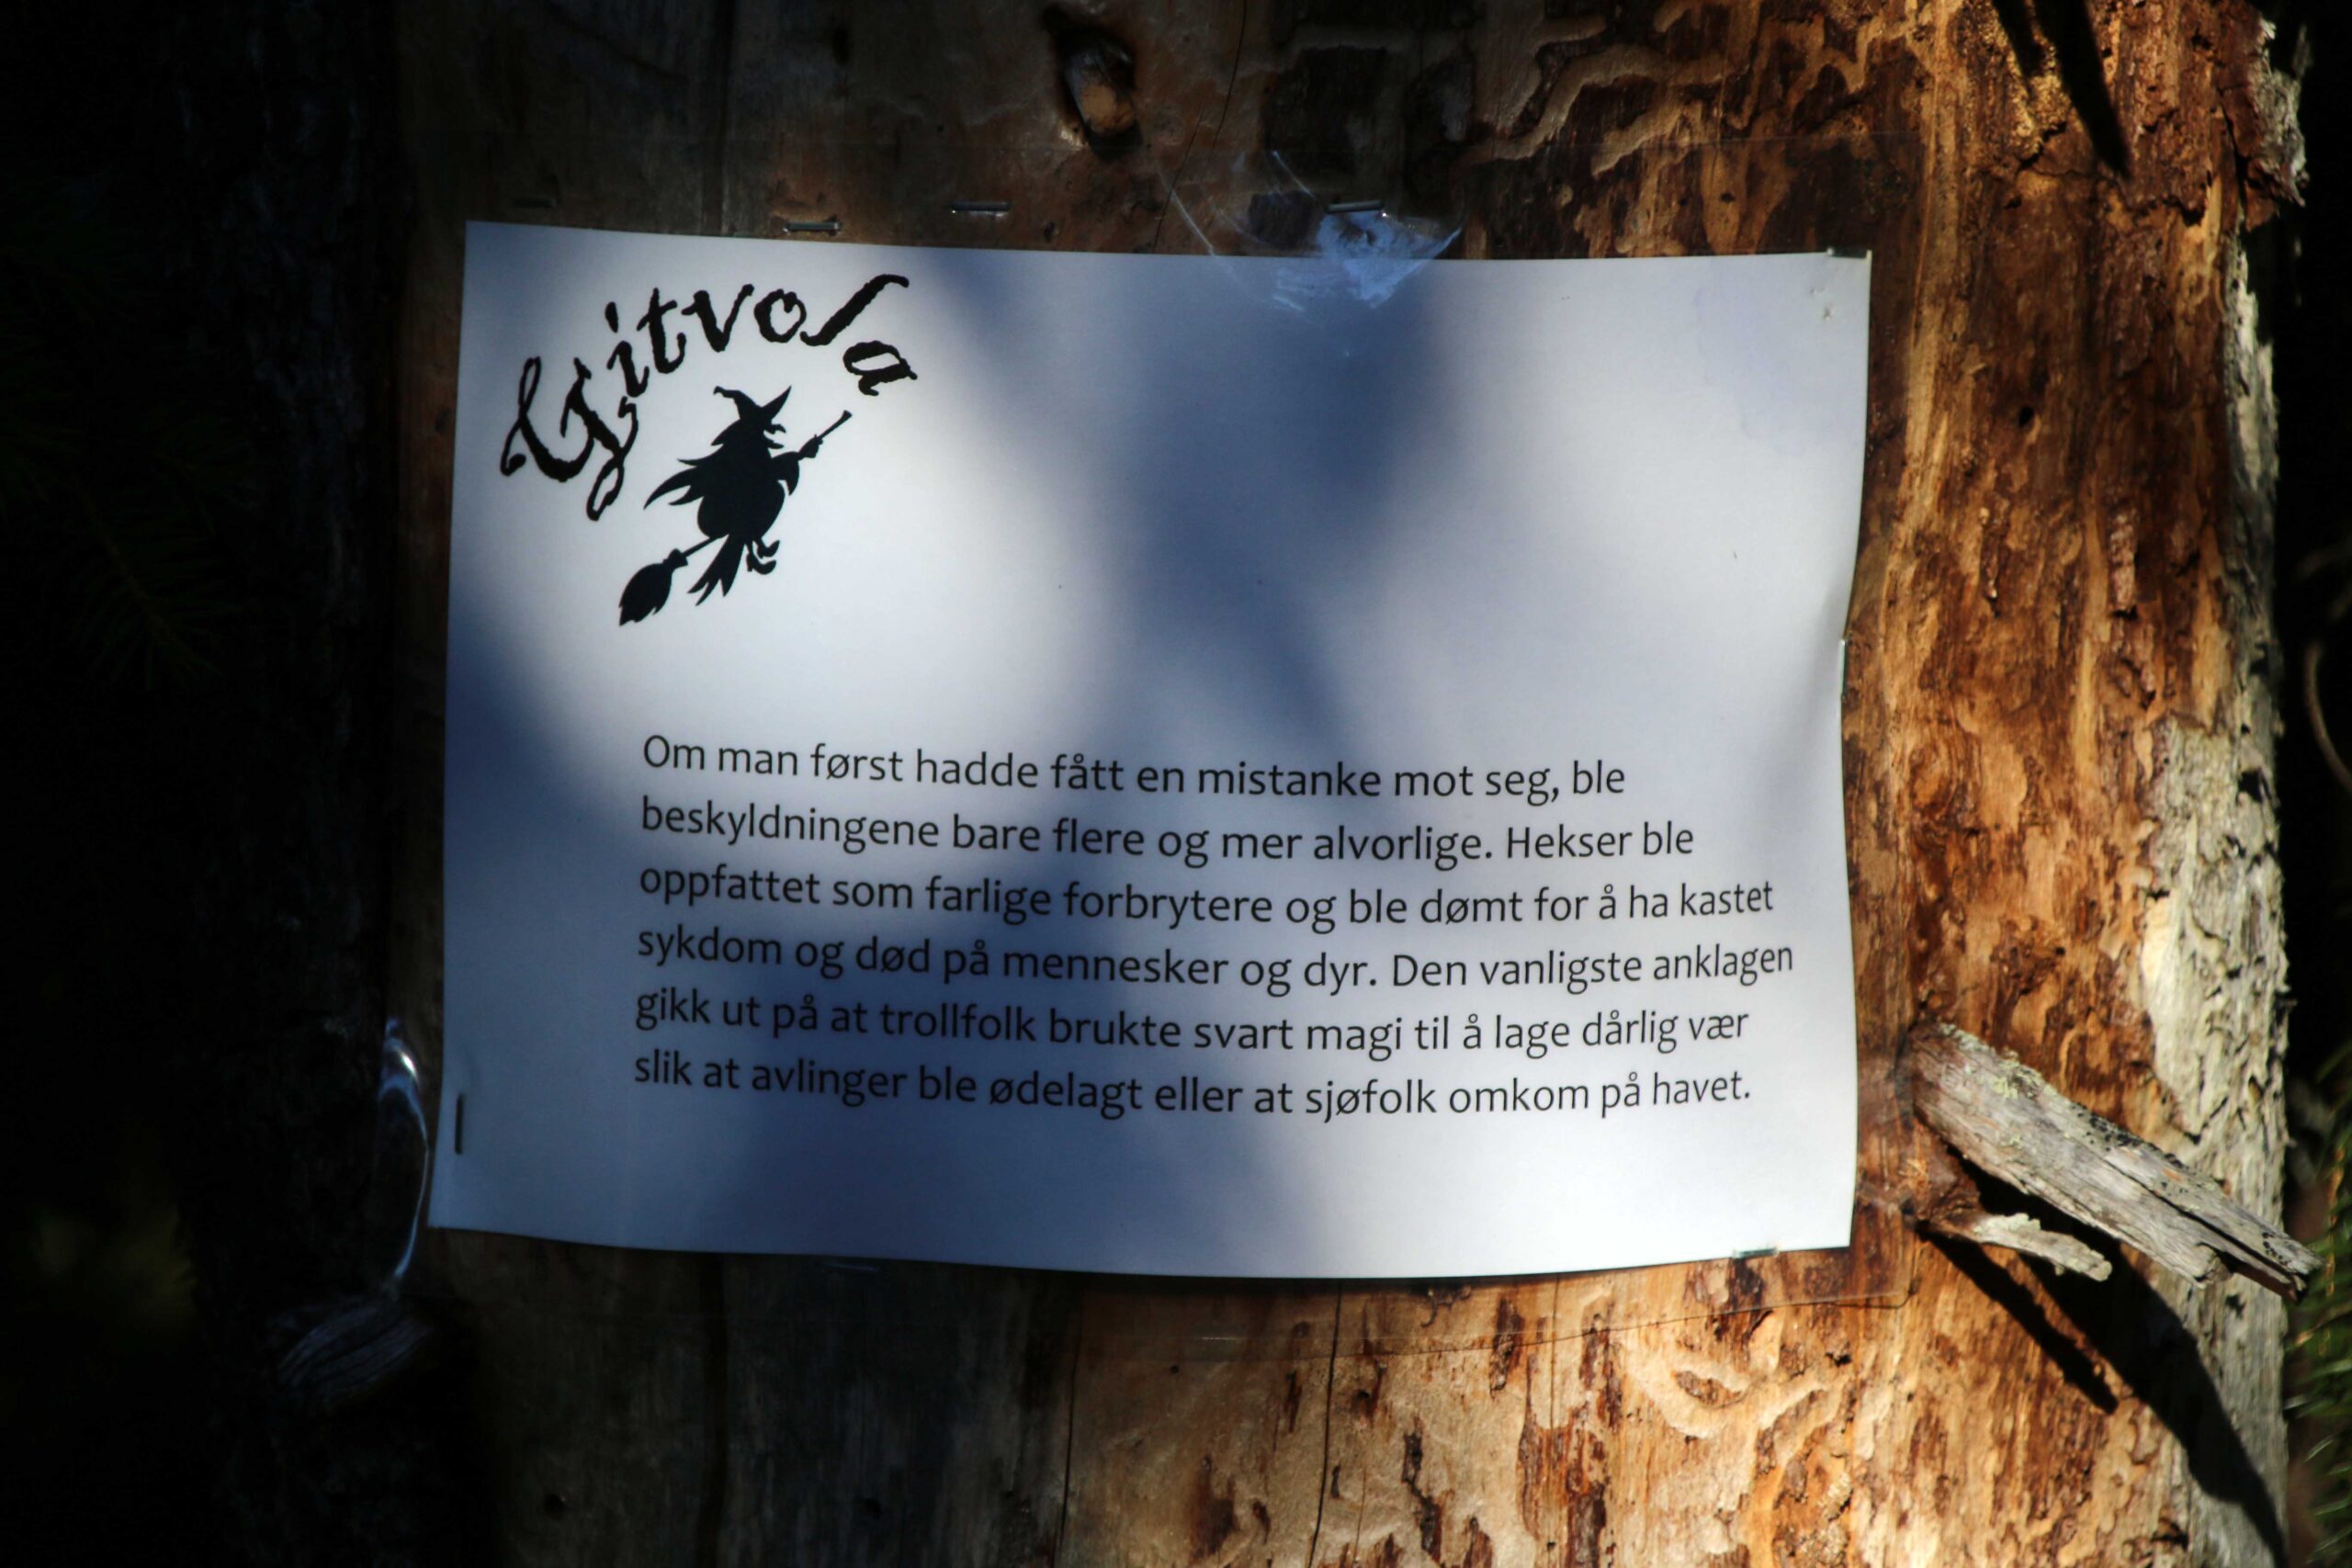 Gitvola
Om man først hadde fått en mistanke mot seg, ble
beskyldningene bare flere og mer alvorlige. Hekser ble
oppfattet som farlige forbrytere og ble dømt for å ha kastet
sykdom og død på mennesker og dyr. Den vanligste anklagen
gikk ut på at trollfolk brukte svart magi til å lage dårlig vær
slik at avlinger ble ødelagt eller at sjøfolk omkom på havet.